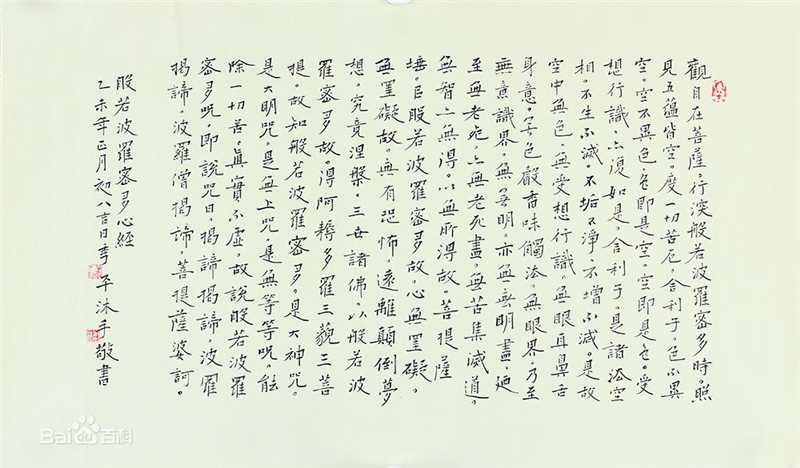 觀自在菩薩。行深般若波羅蜜多時。照
見五蘊皆空。度一切苦厄。舍利子。色不異
空。空不異色。色即是空。空即是色。受
想行識。亦復如是。舍利子。是諸法空
相。不生不滅。不垢不淨。不增不減。是故
空中無色。無受想行識。無眼耳鼻舌
身意。無色聲香味觸法。無眼界。乃至
無意識界。無無明。亦無無明盡。迺
至無老死。亦無老死盡。無苦集滅道。
無智亦無得。以無所得故。菩提薩
埵。依般若波羅蜜多故。心無罣礙。
無罣礙故。無有恐怖。遠離顛倒夢
想。究竟涅槃。三世諸佛。以般若波
羅蜜多故。得阿耨多羅三藐三菩
提。故知般若波羅蜜多。是大神咒。
是大明咒。是無上咒。是無等等咒。能
除一切苦。真實不虛。故說般若波羅
蜜多咒。即說咒曰。揭諦揭諦。波羅
揭諦。波羅僧揭諦。菩提薩婆訶。
般若波羅蜜多心經
乙未年正月初八吉日李沐手敬書
Baidu百科